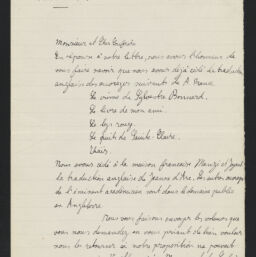 Monsieur et Cher Confrère
En réponse à votre lettre, nous avons l'honneur de
vous faire savoir que nous avons déjà cédé la traduction
anglaise des ouvrages suivants de A. France
Le crime de Sylvestre Bonnard.
Le livre de mon ami.
Le lys rouge.
Le puits de Sainte-Claire.
Thaïs.
Nous avons cédé à la maison française
la traduction anglaise de Jeanne d'Arc. Les autres ouvrages
de l'éminent académicien sont dans le domaine public
en Angleterre.
Nous vous faisons envoyer les volumes que
vous nous demandez en vous priant de bien vouloir
nous les retourner si notre proposition ne pouvait